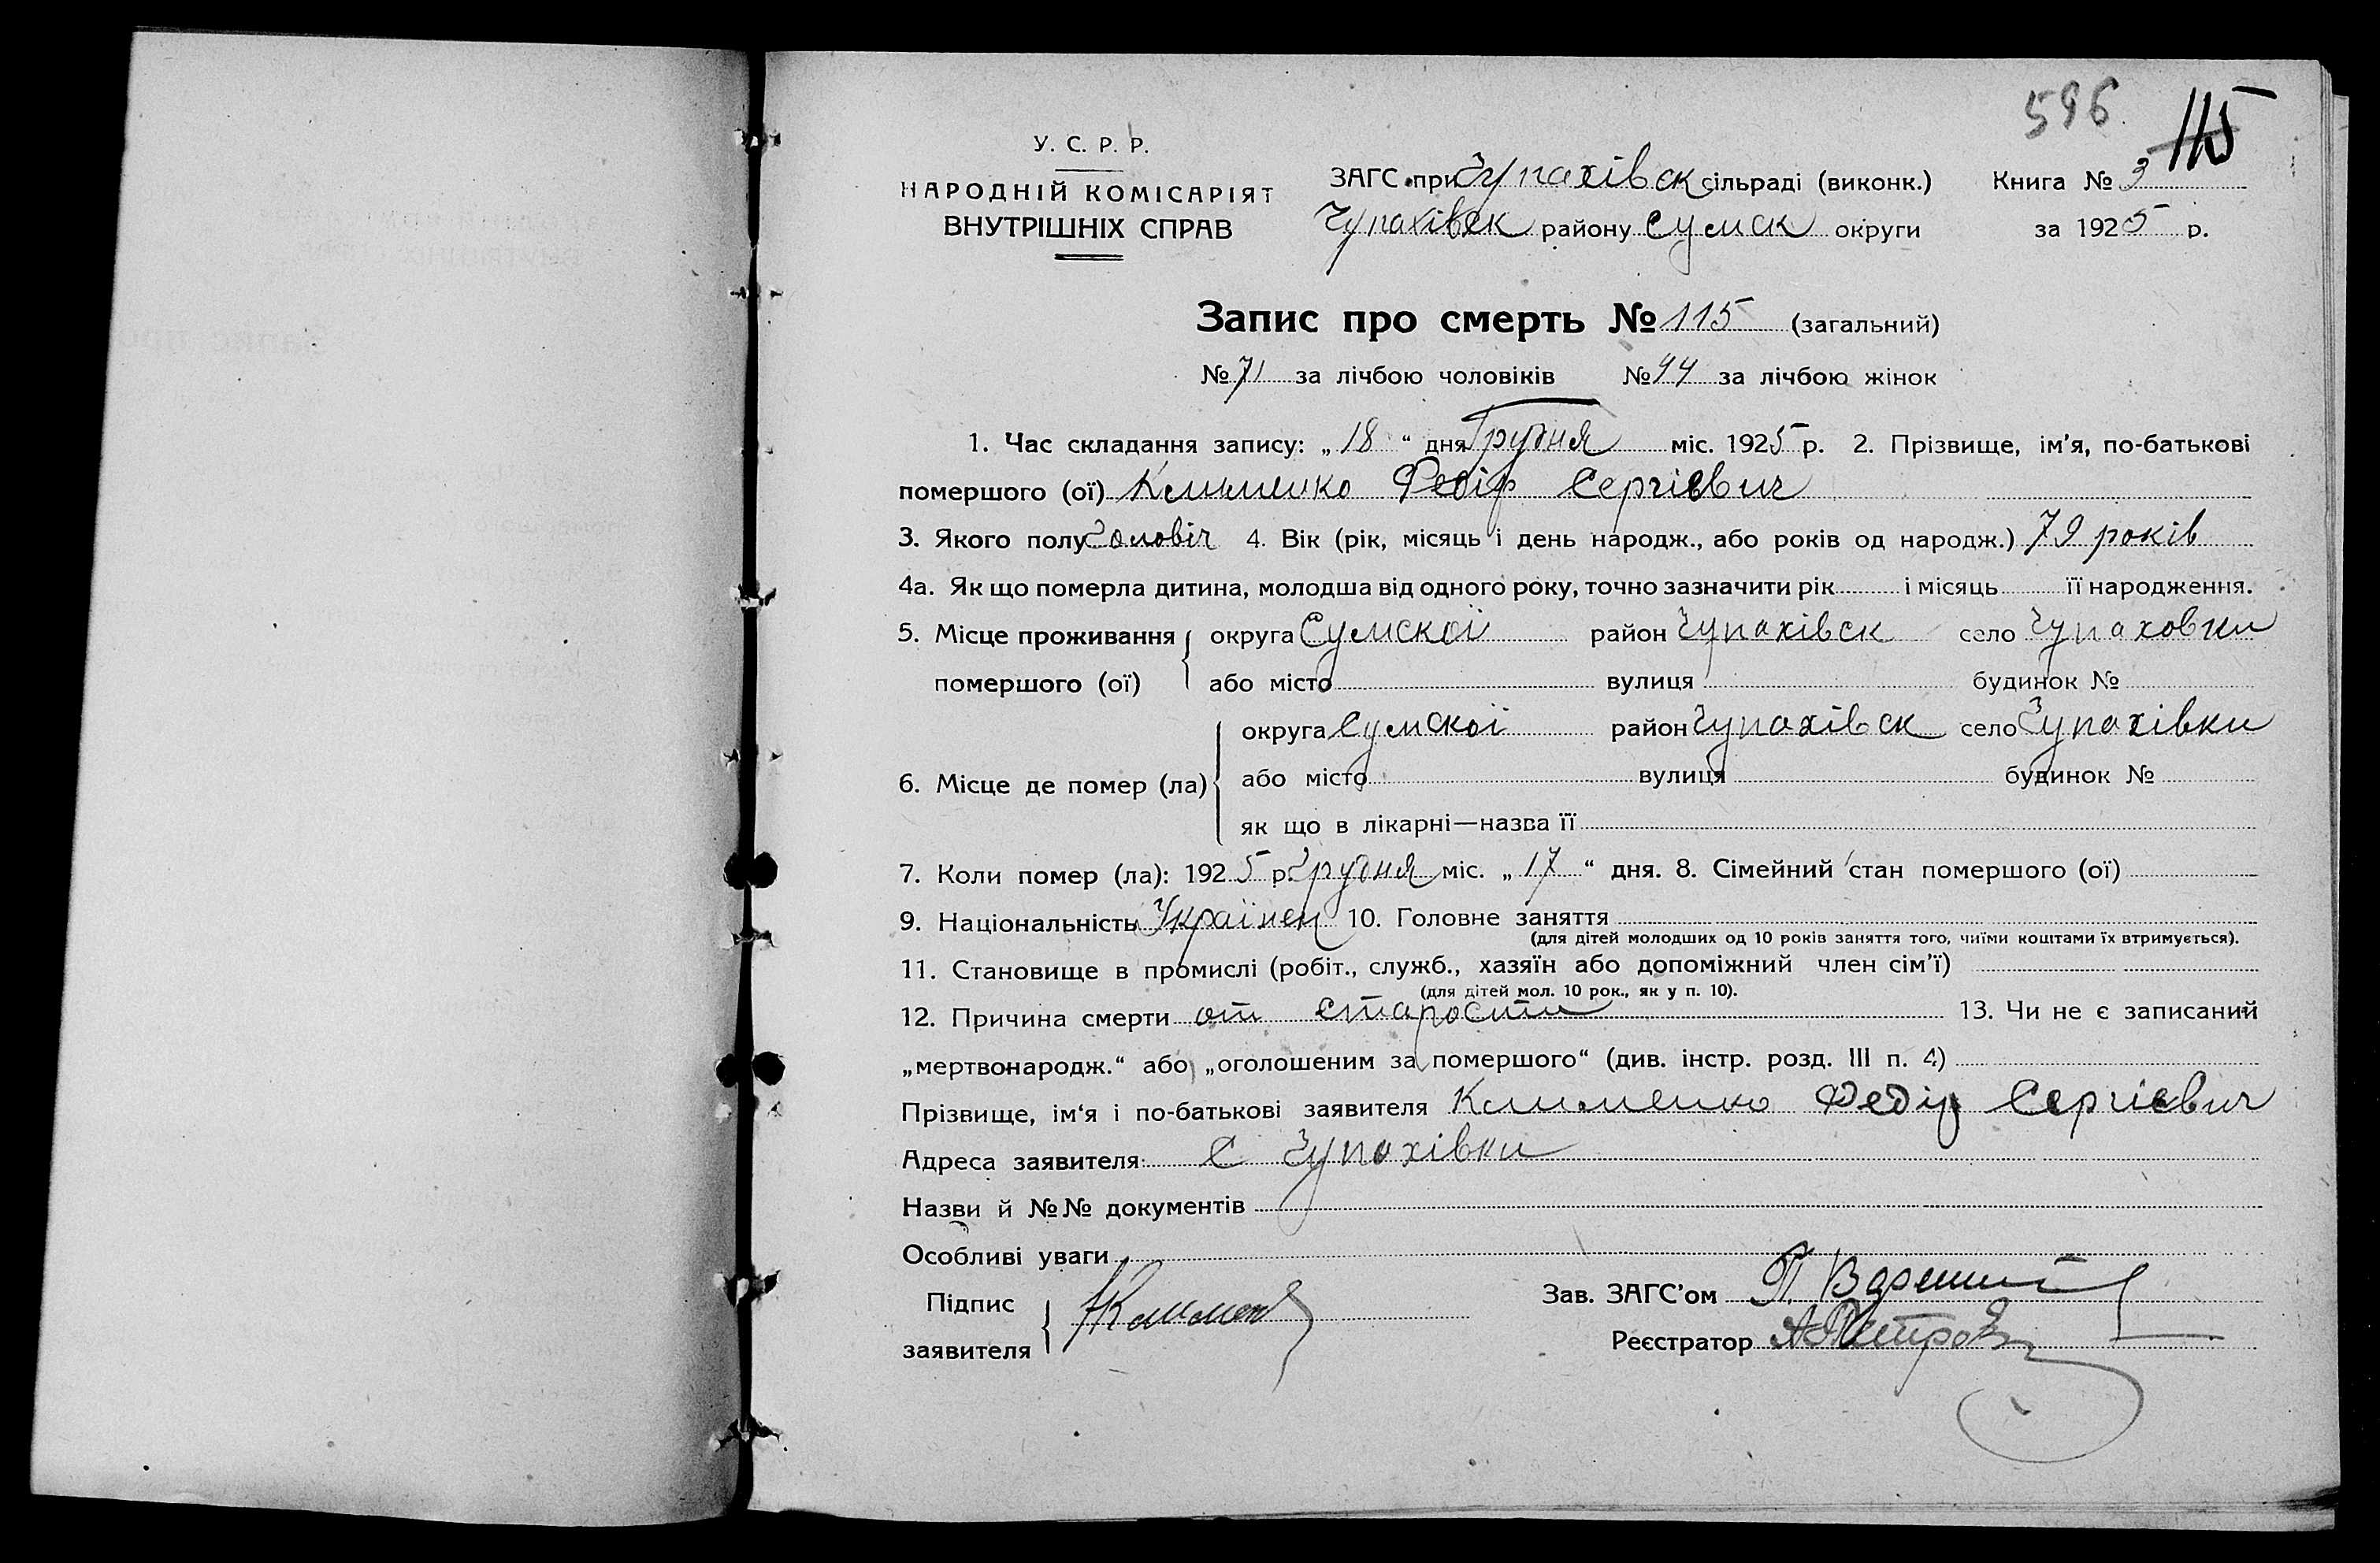 596
115
У. С. Р. Р.
НАРОДНІЙ КОМІСАРІЯТ
ВНУТРІШНІХ СПРАВ
ЗАГС при Чупахівск сільраді (виконк.) Книга № 3
Чупахівск району Сумск округи за 1925 р.
Запис про смерть № 115 (загальний)
№ 71 за лічбою чоловіків № 44 за лічбою жінок
1. Час складання запису: „ 18 “ дня Грудня міс. 1925 р. 2. Прізвище, ім'я, по-батькові
помершого (ої) Клименко Федір Сергієвич
3. Якого полу Чоловіч 4. Вік (рік, місяць і день народж., або років од народж.) 79 років
4а. Як що померла дитина, молодша від одного року, точно зазначити рік і місяць її народження.
5. Місце проживання помершого (ої) округа Сумскої район Чупахівск село Чупаховки
або місто вулиця будинок №
6. Місце де помер (ла) округа Сумскої район Чупахівск село Чупахівки
або місто вулиця будинок №
як що в лікарні—назва її
7. Коли помер (ла): 1925 р. Грудня міс. „ 17 “ дня. 8. Сімейний стан помершого (ої)
9. Національність Українец 10. Головне заняття
(для дітей молодших од 10 років заняття того, чиїми коштами їх втримується).
11. Становище в промислі (робіт., служб., хазяїн або допоміжний член сім'ї)
(для дітей мол. 10 рок., як у п. 10).
12. Причина смерти от старости 13. Чи не є записаний
„мертвонародж.“ або „оголошеним за помершого“ (див. інстр. розд. III п. 4)
Прізвище, ім'я і по-батькові заявителя Клименко Федір Сергієвич
Адреса заявителя: С Чупахівки
Назви й №№ документів
Особливі уваги
Підпис заявителя Клименко
Зав. ЗАГС'ом П.
Реєстратор А Петров